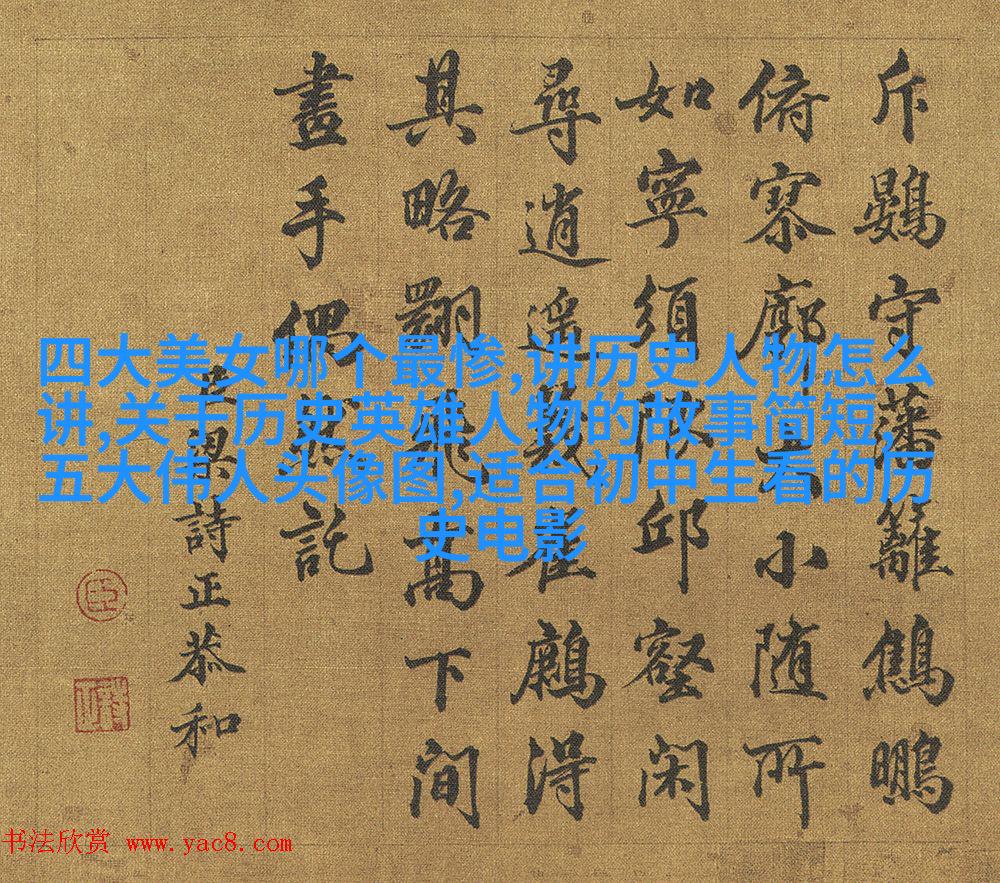 四大美女哪个最惨,讲历史人物怎么
讲,关于历史英雄人物的故事简短,
五大伟人头像图,适合初中生看的历
史电影
斥鷃守藩籬鷦鵬
俯寥廓小随所
如寧須邱壑閑
尋逍遥得
其略翺飛高下間
畫手偶託
臣梁詩正恭和
臣
书法欣赏 www.yac8.com